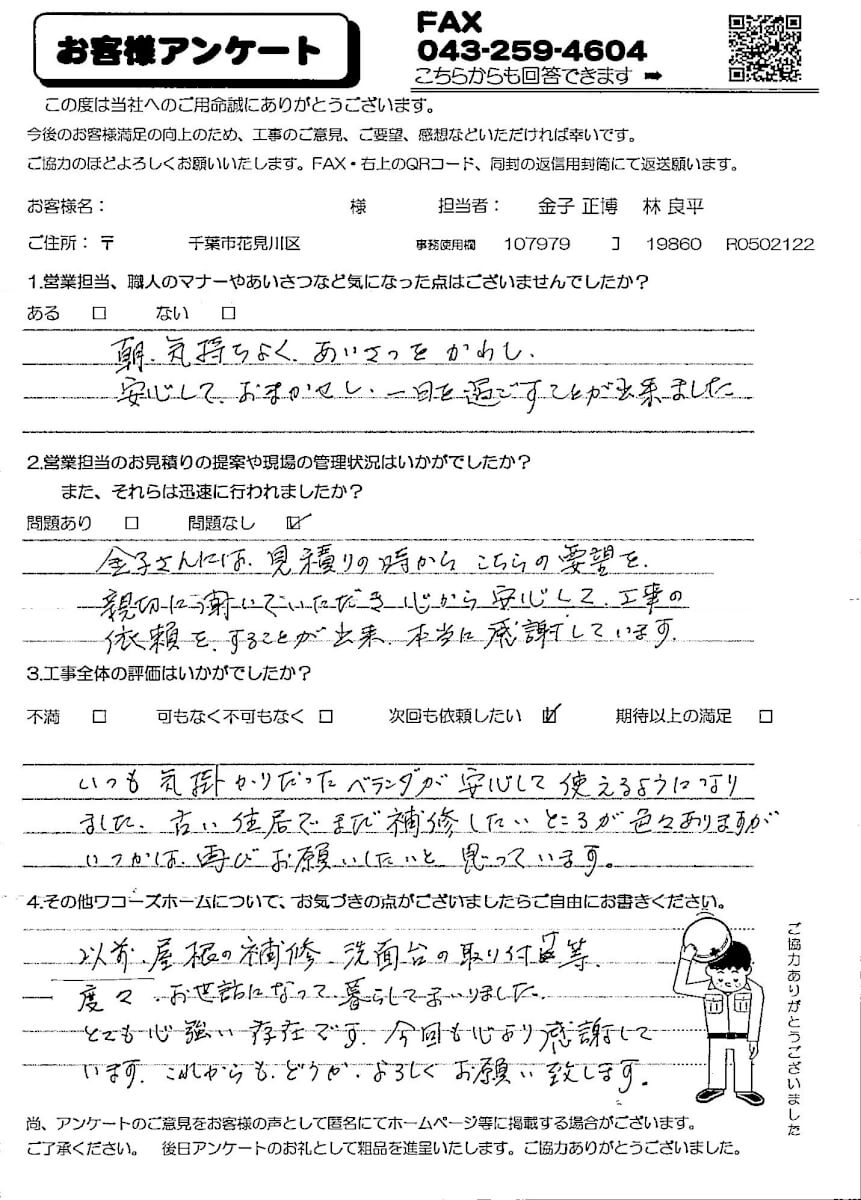 お客様アンケート
FAX
043-259-4604
こちらからも回答できます ➡
この度は当社へのご用命誠にありがとうございます。
今後のお客様満足の向上のため、工事のご意見、ご要望、感想などいただければ幸いです。
ご協力のほどよろしくお願いいたします。FAX・右上のQRコード、同封の返信用封筒にて返送願います。
お客様名： 様 担当者： 金子 正博 林 良平
ご住所：〒 千葉市花見川区 事務使用欄 107979 J 19860 R0502122
1.営業担当、職人のマナーやあいさつなど気になった点はございませんでしたか？
ある □ ない □
朝、気持ちよく、あいさつをかわし、
安心して、おまかせし、一日を過ごすことが出来ました
2.営業担当のお見積りの提案や現場の管理状況はいかがでしたか？
また、それらは迅速に行われましたか？
問題あり □ 問題なし ☑
金子さんには、見積りの時からこちらの要望を、
親切に聞いていただき心から安心して、工事の
依頼を、することが出来、本当に感謝しています。
3.工事全体の評価はいかがでしたか？
不満 □ 可もなく不可もなく □ 次回も依頼したい ☑ 期待以上の満足 □
いつも気掛かりだったベランダが安心して使えるようになり
ました。古い住居でまだ補修したいところが色々ありますが
いつかは、再びお願いしたいと思っています。
4.その他ワコーズホームについて、お気づきの点がございましたらご自由にお書きください。
以前、屋根の補修、洗面台の取り付け等、
度々、お世話になって暮らしてまいりました。
とても心強い存在です。今回も心より感謝して
います。これからも、どうか、よろしくお願い致します。
ご協力ありがとうございました
尚、アンケートのご意見をお客様の声として匿名にてホームページ等に掲載する場合がございます。
ご了承ください。 後日アンケートのお礼として粗品を進呈いたします。ご協力ありがとうございました。